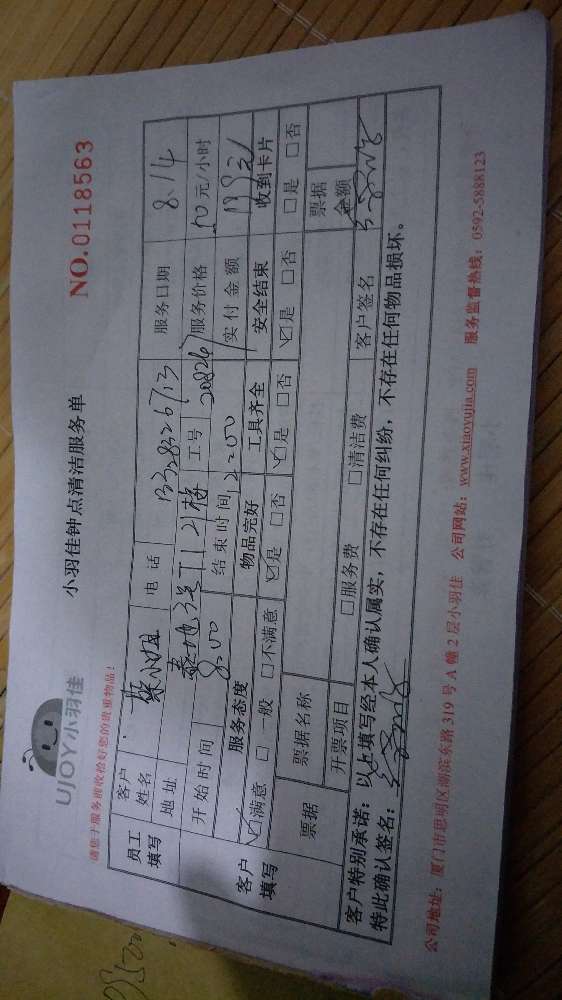 UJOY小羽佳
小羽佳钟点清洁服务单
NO.0118563
请您于服务前收拾好您的贵重物品!
员工填写
客户姓名 蔡小姐 电话 13328326713 服务日期 8.14
地址 工号 20826 服务价格 50元/小时
开始时间 8:00 结束时间 12:00 实付金额
客户填写
服务态度 物品完好 工具齐全 安全结束 收到卡片
☑满意 □一般 □不满意 ☑是 □否 ☑是 □否 ☑是 □否 □是 □否
票据 票据名称 票据金额
开票项目 □服务费 □清洁费 客户签名
客户特别承诺:以上填写经本人确认属实,不存在任何纠纷,不存在任何物品损坏。
特此确认签名:
公司地址:厦门市思明区湖滨东路319号A幢2层小羽佳 公司网站:www.xiaoyujia.com 服务监督热线:0592-5888123